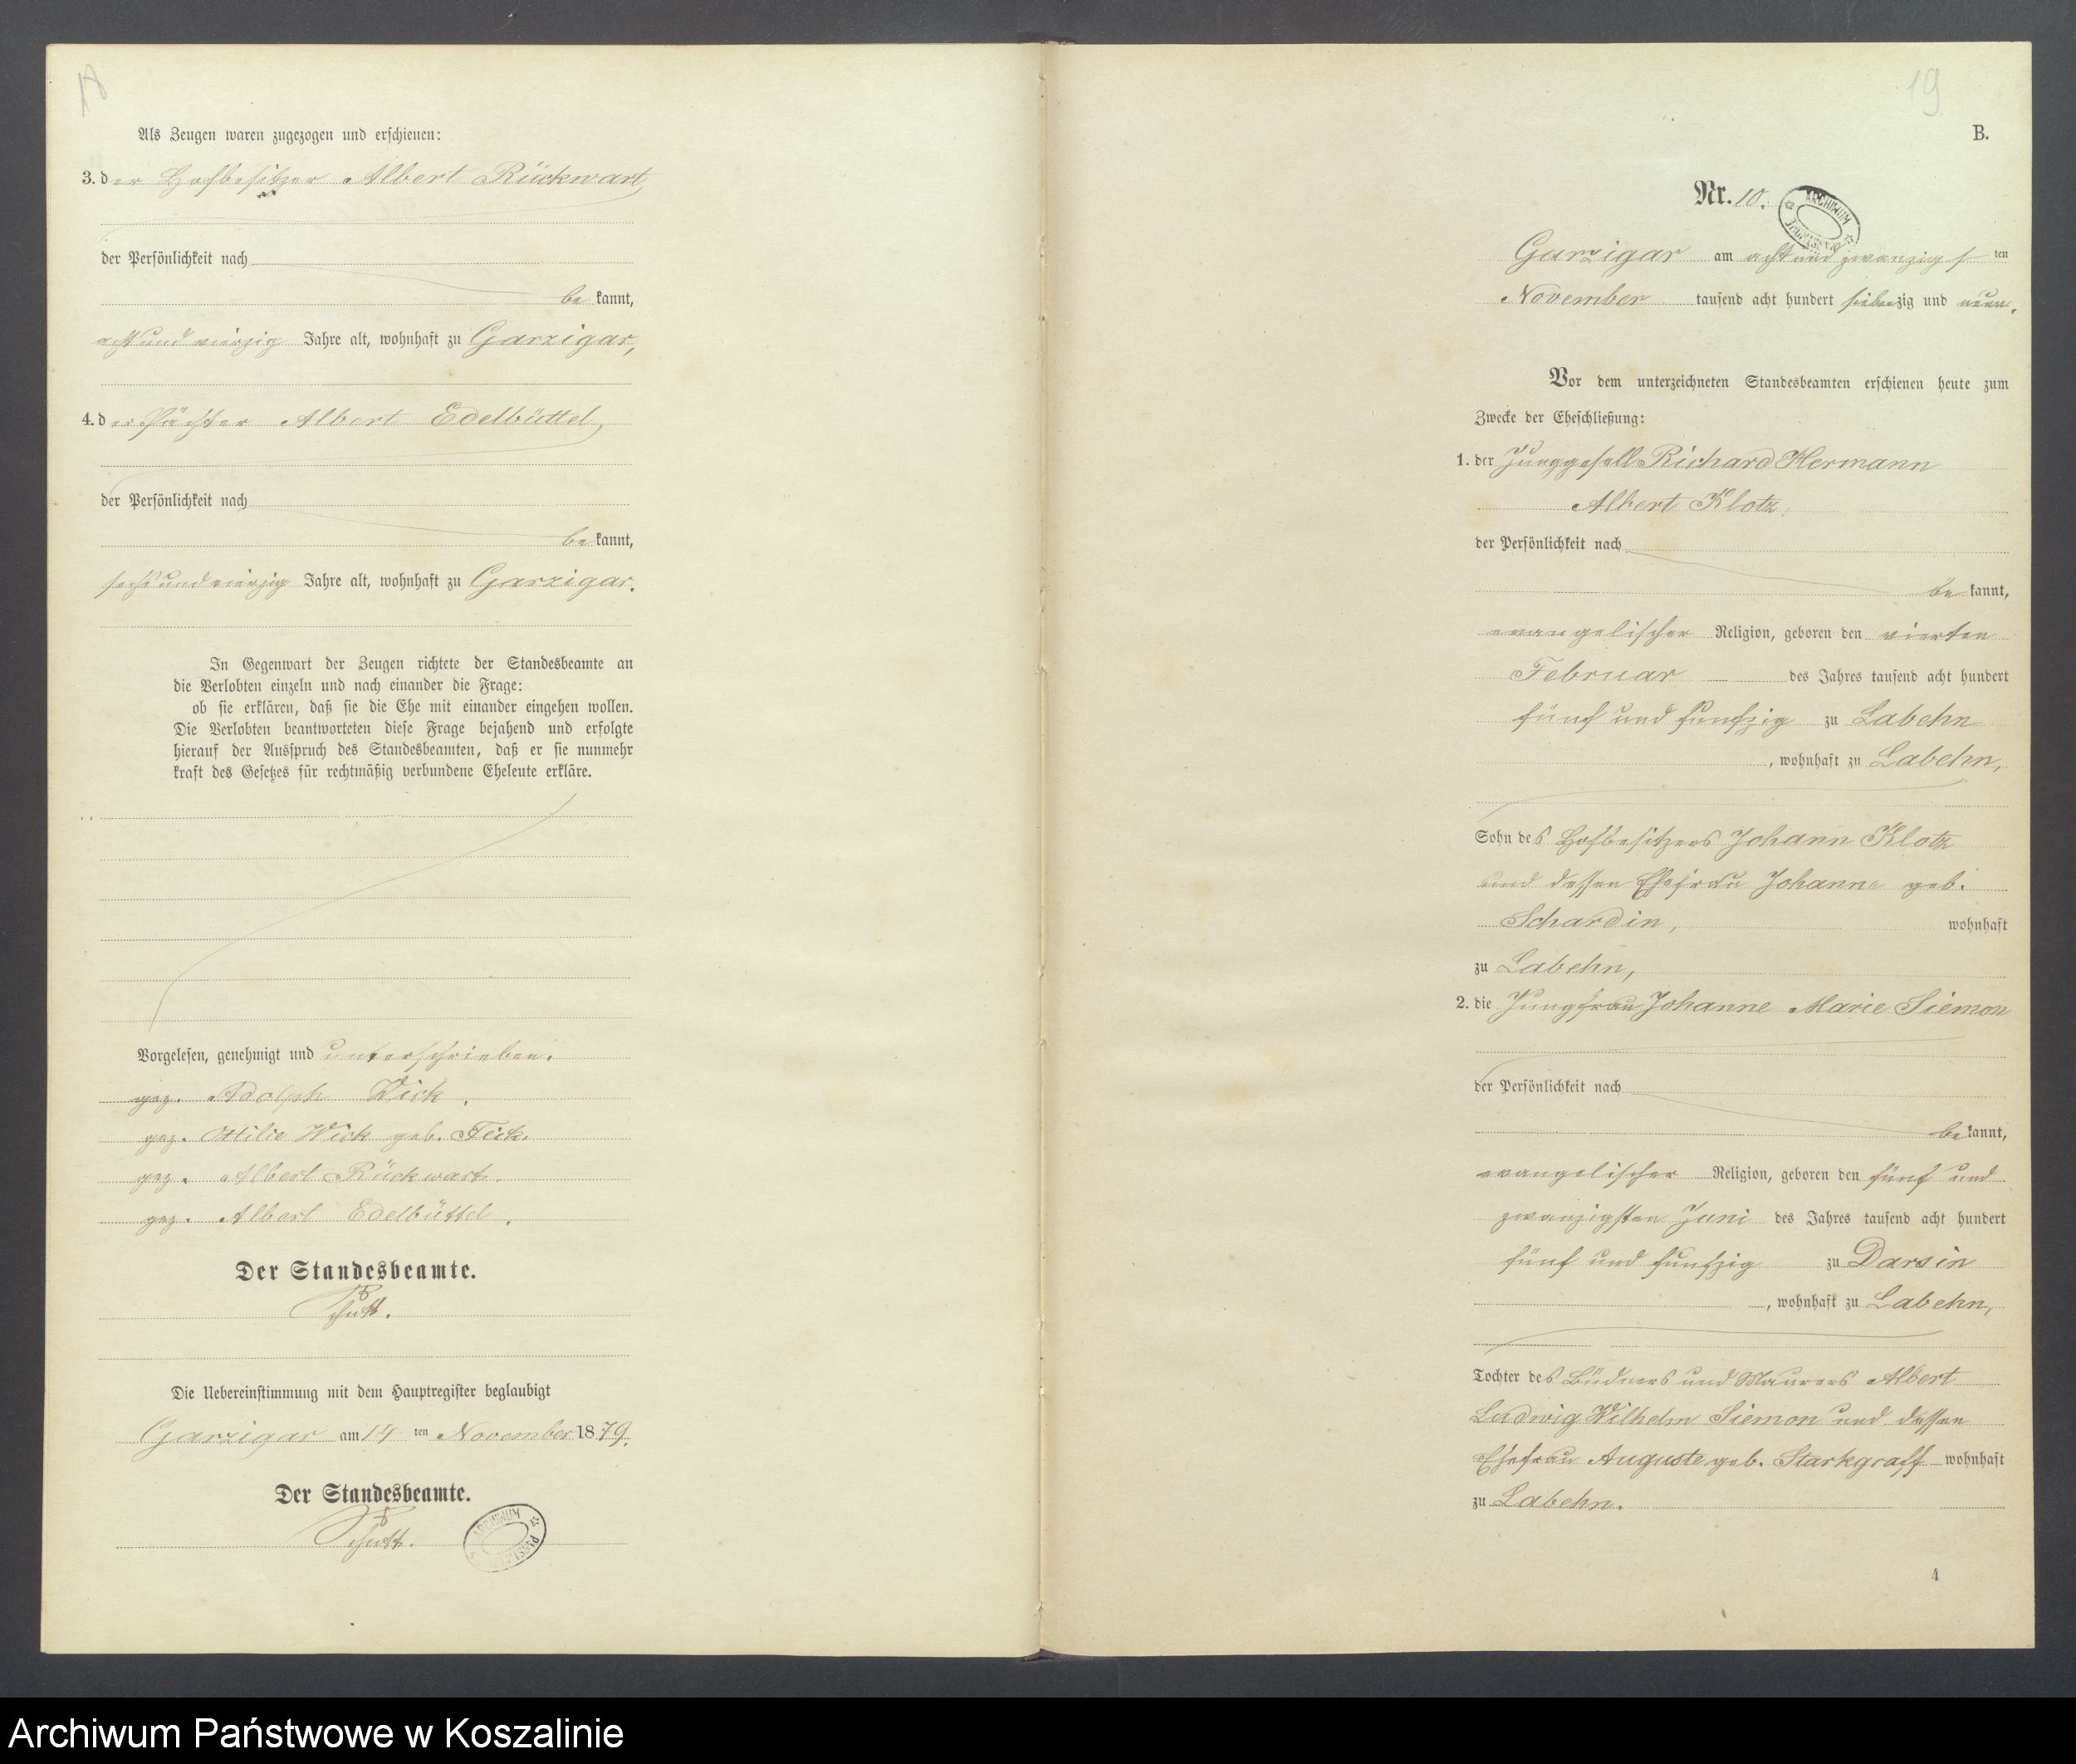 18
Als Zeugen waren zugezogen und erschienen:
3. der Hofbesitzer Albert Rückwart,
der Persönlichkeit nach
be kannt,
acht und vierzig Jahre alt, wohnhaft zu Garzigar,
4. der Pächter Albert Edelbüttel,
der Persönlichkeit nach
be kannt,
sechs und vierzig Jahre alt, wohnhaft zu Garzigar.
In Gegenwart der Zeugen richtete der Standesbeamte an
die Verlobten einzeln und nach einander die Frage:
ob sie erklären, daß sie die Ehe mit einander eingehen wollen.
Die Verlobten beantworteten diese Frage bejahend und erfolgte
hierauf der Ausspruch des Standesbeamten, daß er sie nunmehr
kraft des Gesetzes für rechtmäßig verbundene Eheleute erkläre.
Vorgelesen, genehmigt und unterschrieben.
gez. Adolph Wick.
gez. Ottilie Wick geb. Fick.
gez. Albert Rückwart.
gez. Albert Edelbüttel.
Der Standesbeamte.
Die Uebereinstimmung mit dem Hauptregister beglaubigt
Garzigar am 14 ten November 1879.
Der Standesbeamte.
ARCHIWUM
19
B.
Nr. 10.
ARCHIWUM
Garzigar am acht und zwanzigs ten
November tausend acht hundert siebenzig und neun.
Vor dem unterzeichneten Standesbeamten erschienen heute zum
Zwecke der Eheschließung:
1. der Junggesell Richard Hermann
Albert Klotz
der Persönlichkeit nach
be kannt,
evangelischer Religion, geboren den vierten
Februar des Jahres tausend acht hundert
fünf und funfzig zu Labehn
, wohnhaft zu Labehn,
Sohn des Hofbesitzers Johann Klotz
und dessen Ehefrau Johanne geb.
Schardin, wohnhaft
zu Labehn,
2. die Jungfrau Johanne Marie Siemon
der Persönlichkeit nach
be kannt,
evangelischer Religion, geboren den fünf und
zwanzigsten Juni des Jahres tausend acht hundert
fünf und funfzig zu Darsin
, wohnhaft zu Labehn,
Tochter des Büdners und Maurers Albert
Ludwig Wilhelm Siemon und dessen
Ehefrau Auguste geb. Starkgraff wohnhaft
zu Labehn.
4
Archiwum Państwowe w Koszalinie